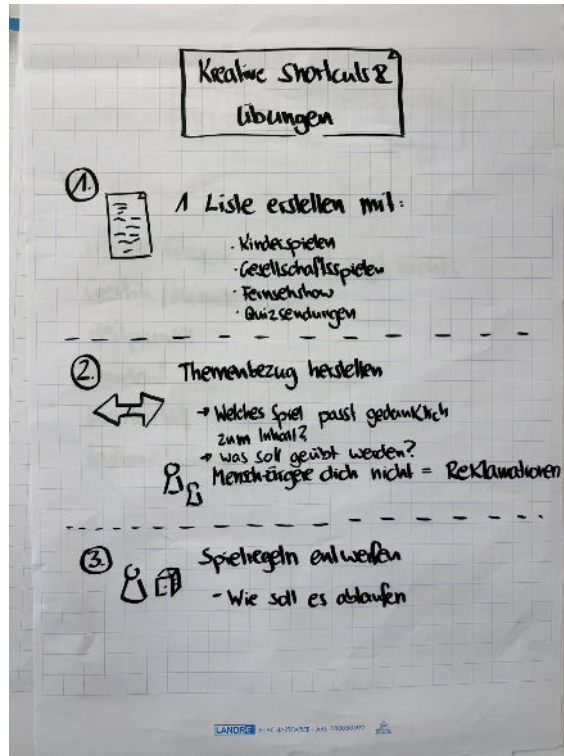 Kreative Shortcuts &
Übungen
1.
1 Liste erstellen mit:
· Kinderspielen
· Gesellschaftsspielen
· Fernsehshow
· Quizsendungen
2.
Themenbezug herstellen
→ Welches Spiel passt gedanklich
zum Inhalt?
→ was soll geübt werden?
Mensch-ärgere dich nicht = Reklamationen
3.
Spielregeln entwerfen
- Wie soll es ablaufen
LANDRÉ